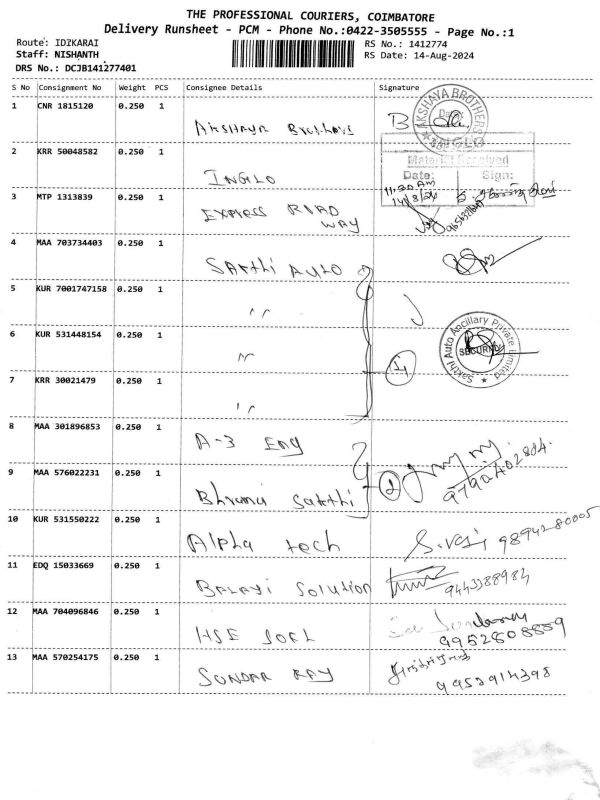 THE PROFESSIONAL COURIERS, COIMBATORE
Delivery Runsheet - PCM - Phone No.:0422-3505555 - Page No.:1
Route: IDIKARAI
RS No.: 1412774
Staff: NISHANTH
RS Date: 14-Aug-2024
DRS No.: DCJB141277401
S No Consignment No Weight PCS Consignee Details Signature
1 CNR 1815120 0.250 1 AKSHAYA Brothers
AKSHAYA BROTHERS
2 KRR 50048582 0.250 1 INGLO
INGLO
Material Received
Date: Sign:
11.30 AM
14/8/24
3 MTP 1313839 0.250 1 EXPRESS ROAD WAY
4 MAA 703734403 0.250 1 SAKthi AUTO
5 KUR 7001747158 0.250 1 "
6 KUR 531448154 0.250 1 "
Sakthi Auto Ancillary Private Limited
7 KRR 30021479 0.250 1 "
8 MAA 301896853 0.250 1 A-3 ENg
9 MAA 576022231 0.250 1 Bhrama Sakthi
2
9790402804
10 KUR 531550222 0.250 1 Alpha tech 9894280005
11 EDQ 15033669 0.250 1 BALAJi Solution
12 MAA 704096846 0.250 1 HSE
9952808889
13 MAA 570254175 0.250 1 SUNDAR RAY
9952914398